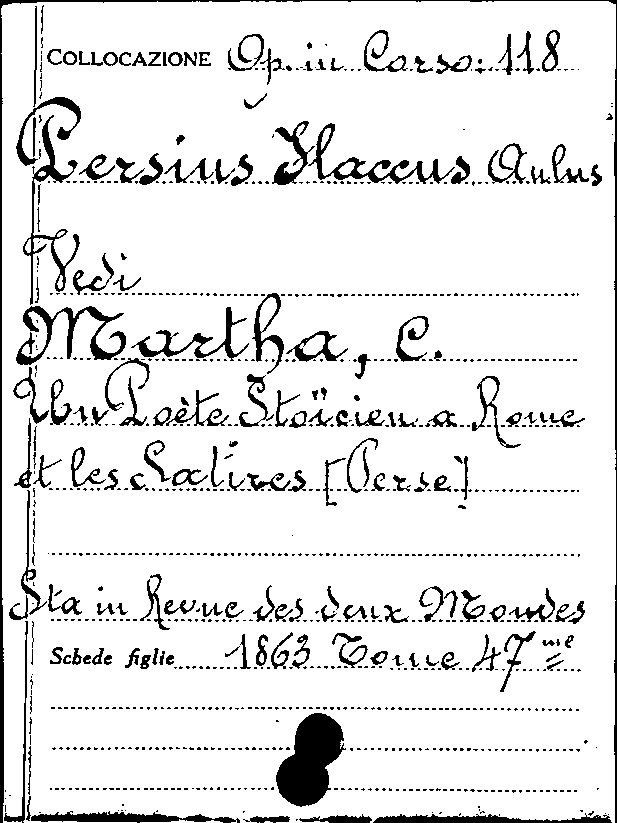 COLLOCAZIONE Op. in Corso: 118
Persius Flaccus Aulus
Vedi
Martha, C.
Un Poète Stoïcien a Rome
et les Satires [Perse]
Sta in Revue des deux Mondes
Schede figlie 1863 Tome 47me